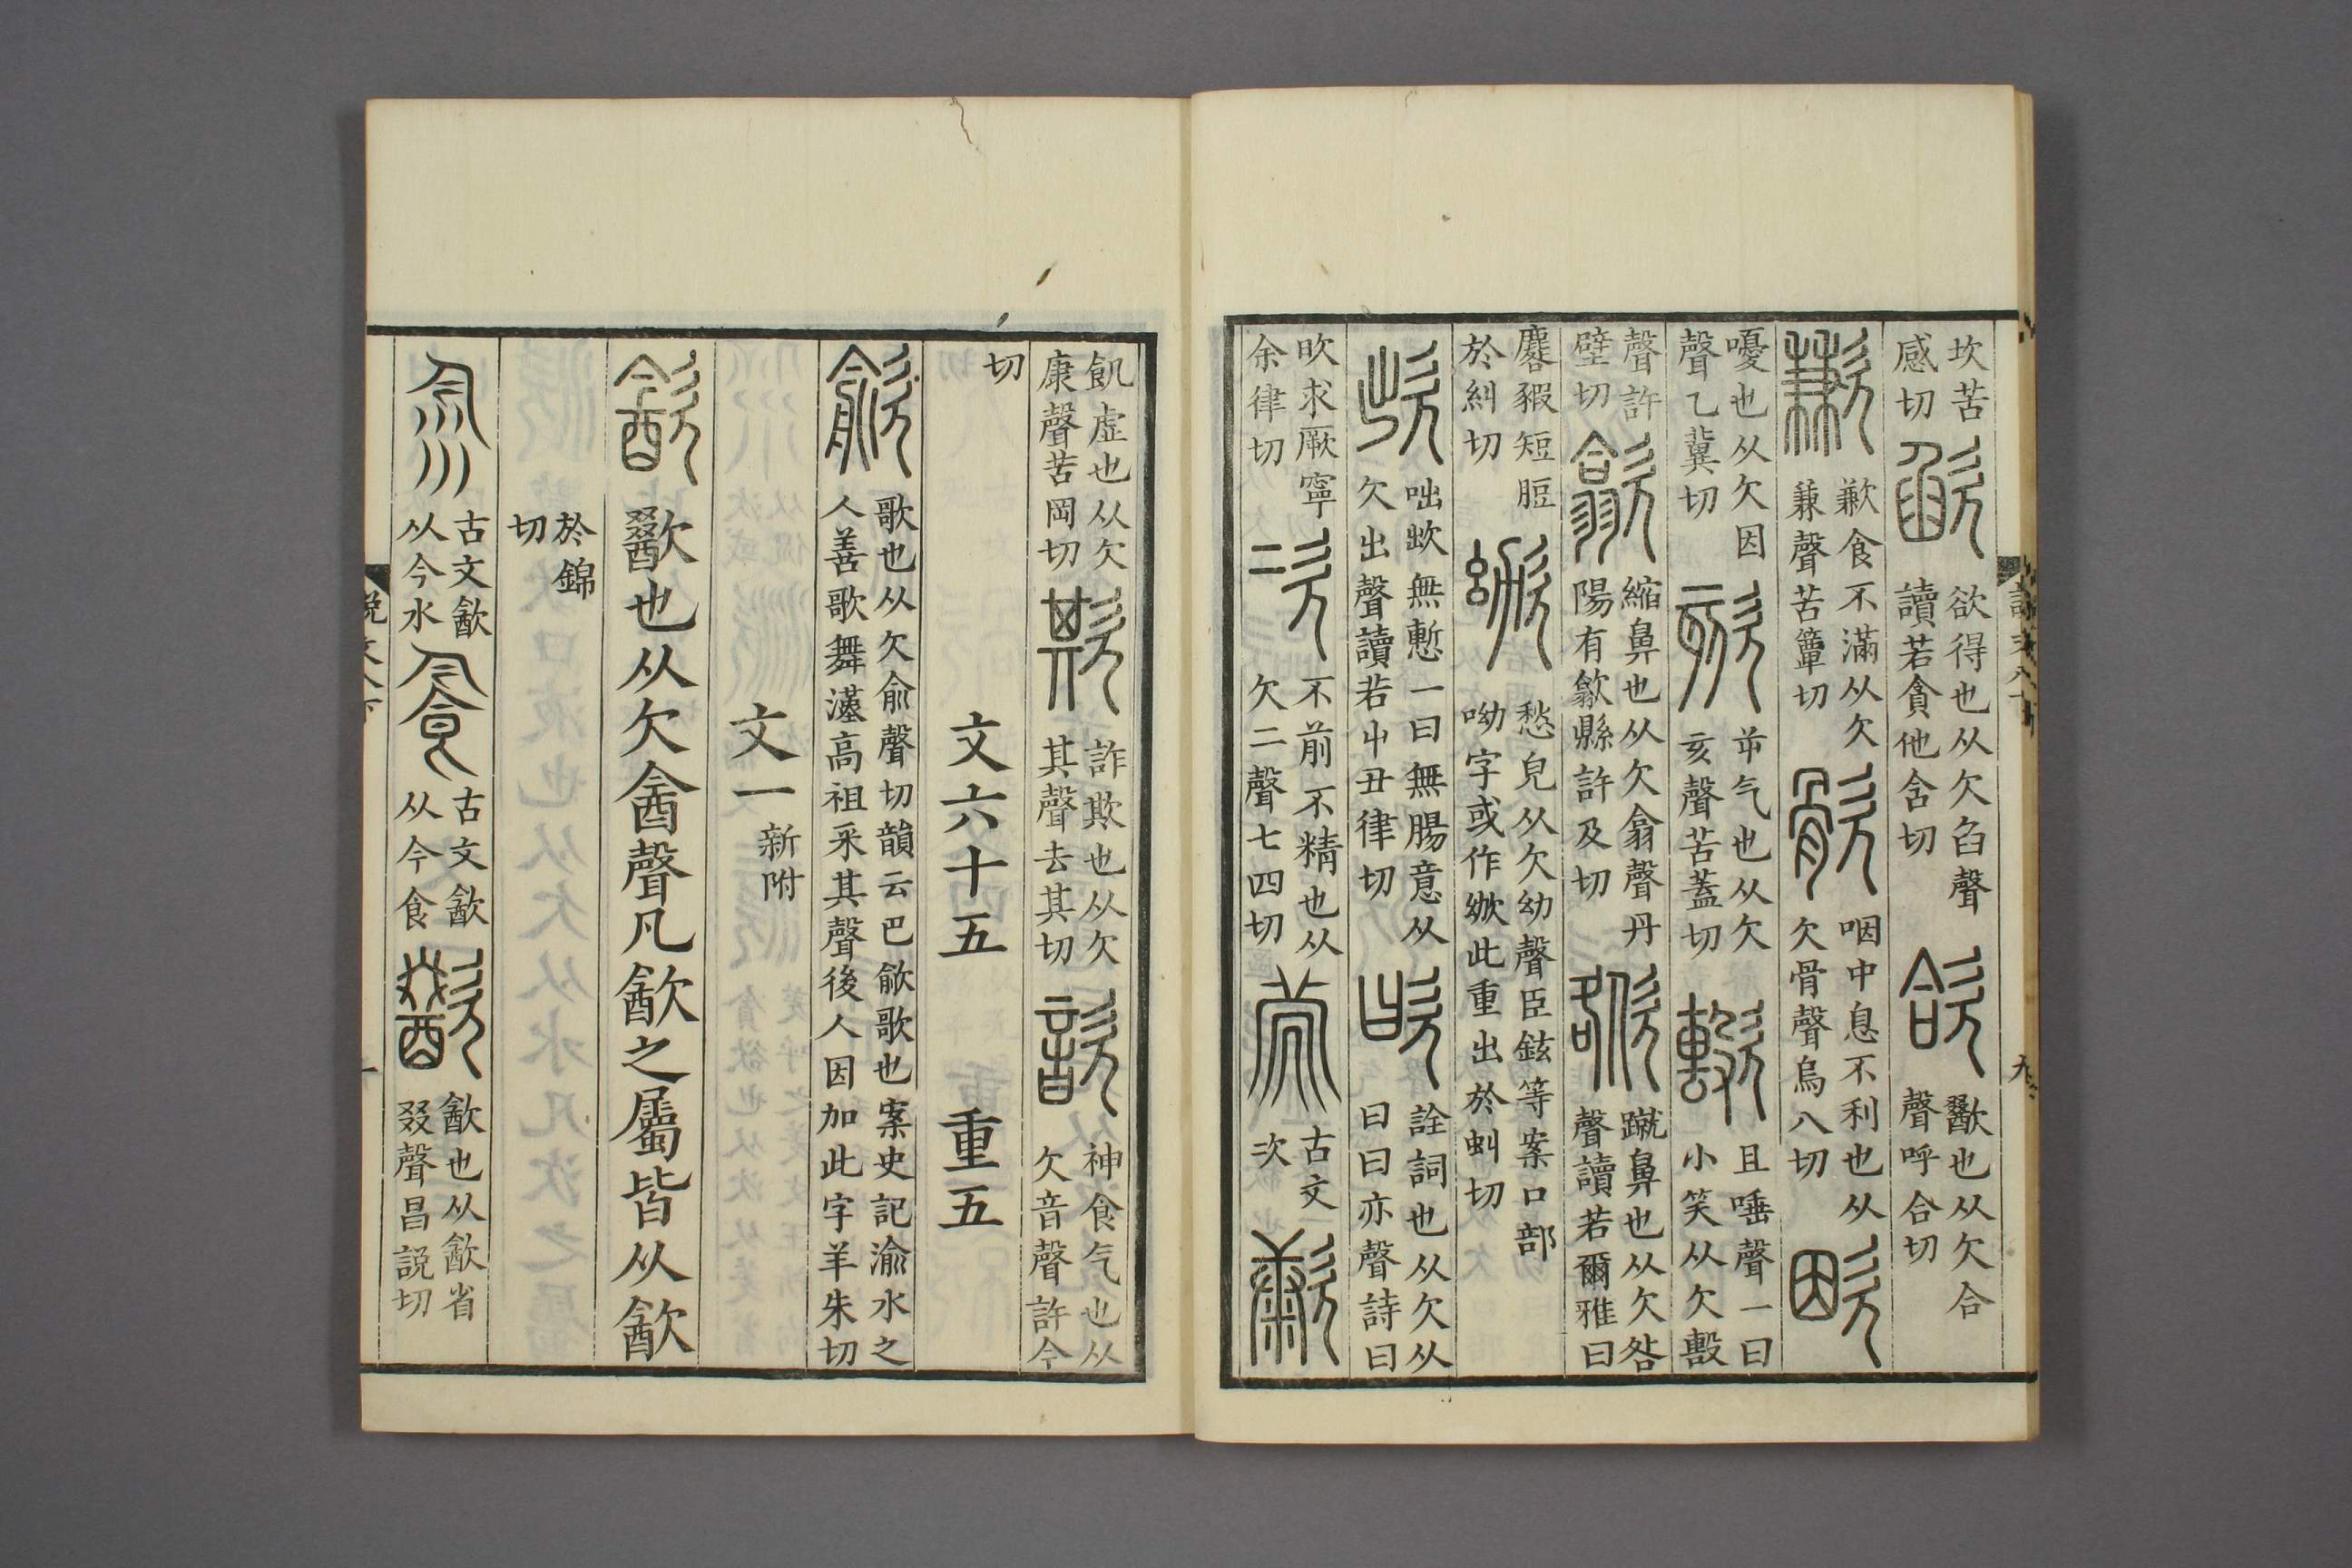 坎苦
感切
欿
欲得也从欠臽聲
讀若貪他含切
欱
歠也从欠合
聲呼合切
歉
歉食不滿从欠
兼聲苦簟切
咽中息不利也从
欠骨聲烏八切
欭
嚘也从欠因
聲乙冀切
欬
屰气也从欠
亥聲苦蓋切
且唾聲一曰
小笑从欠毄
聲許
壁切
歙
縮鼻也从欠翕聲丹
陽有歙縣許及切
蹴鼻也从欠咎
聲讀若爾雅曰
麔豭短脰
於糾切
㰲
愁皃从欠幼聲臣鉉等案口部
呦字或作㰲此重出於虯切
欪
咄欪無慙一曰無腸意从
欠出聲讀若屮丑律切
欥
詮詞也从欠从
曰曰亦聲詩曰
欥求厥寧
余律切
次
不前不精也从
欠二聲七四切
古文
次
飢虛也从欠
康聲苦岡切
欺
詐欺也从欠
其聲去其切
歆
神食气也从
欠音聲許今
切
文六十五　重五
歈
歌也从欠俞聲切韻云巴歈歌也案史記渝水之
人善歌舞漢高祖采其聲後人因加此字羊朱切
文一 新附
㱃
歠也从欠酓聲凡㱃之屬皆从㱃
於錦
切
古文㱃
从今水
古文㱃
从今食
歠
㱃也从㱃省
叕聲昌說切
說文八下